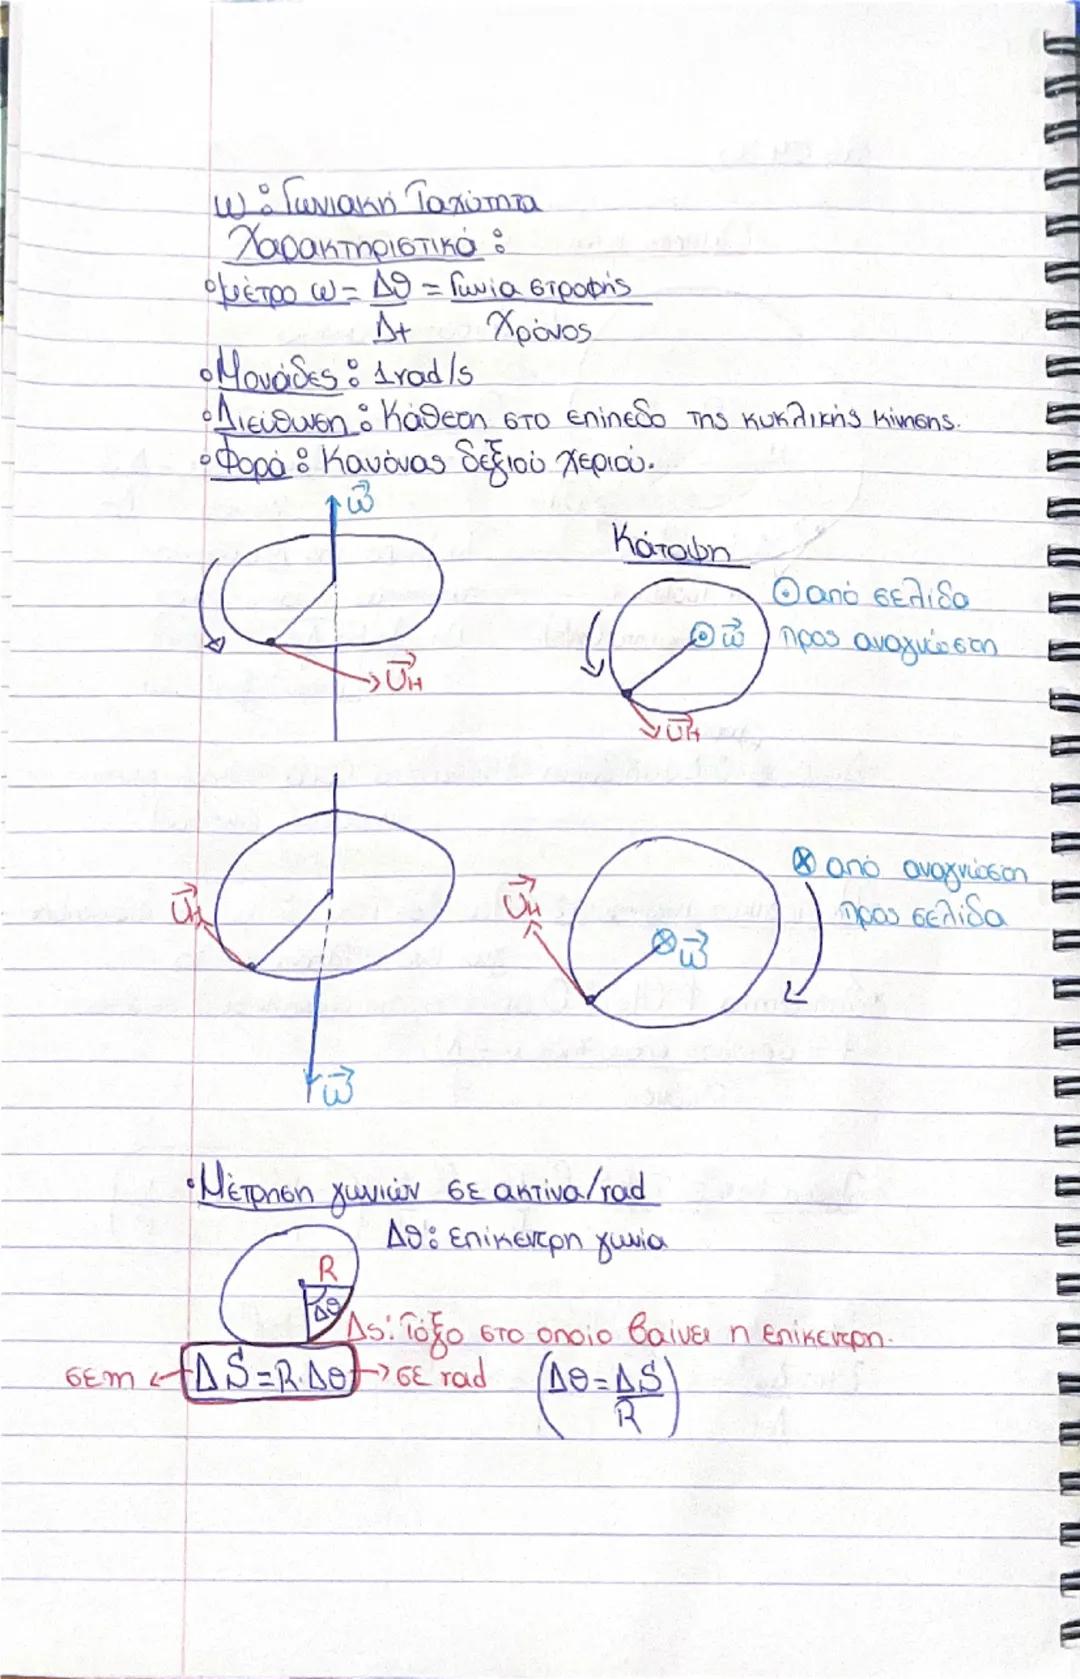 ω: Γωνιακή Ταχύτητα
Χαρακτηριστικά:
•μέτρο ω = Δθ = Γωνία στροφής
Δt Χρόνος
•Μονάδες: 1rad/s
•Διεύθυνση: Κάθετη στο επίπεδο της κυκλικής κίνησης.
•Φορά: Κανόνας δεξιού χεριού.
ω⃗
Κάτοψη
⊙ από σελίδα
προς αναγνώστη
⊙ ω⃗
υ⃗
υ⃗
⊗ από αναγνώστη
προς σελίδα
υ⃗
υ⃗
⊗ ω⃗
ω⃗
•Μέτρηση γωνιών σε ακτίνα/rad
Δθ: επίκεντρη γωνία
R
Δθ
Δs: Τόξο στο οποίο βαίνει η επίκεντρη.
σε m ← ΔS=R·Δθ → σε rad (Δθ=ΔS/R)